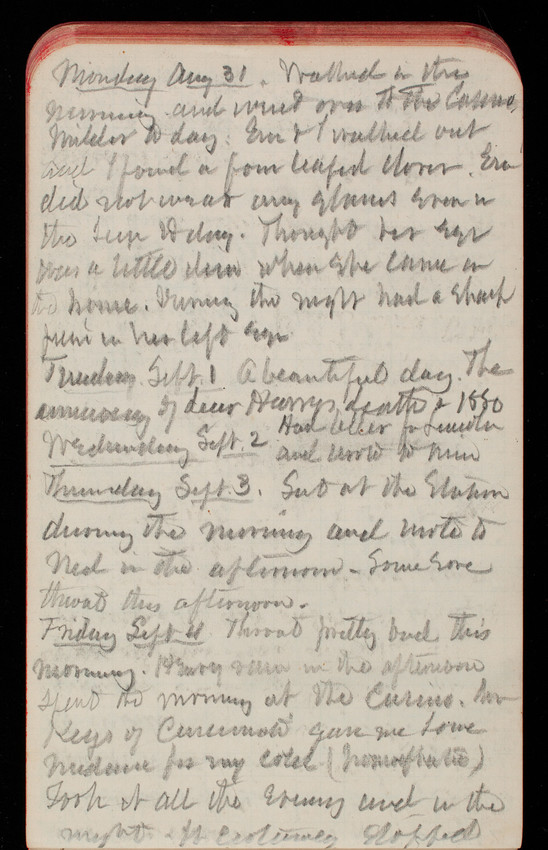 Monday Aug 31. Walked in the
morning and went over to the Casino,
Milder to day. Em & I walked out
and I found a four leafed clover. Em
did not wear any glasses even in
the Sun to day. Thought her eye
was a little dim when she came in
the house. During the night had a sharp
pain in her left eye
Tuesday Sept. 1 A beautiful day. The
anniversary of dear Harry's death in 1880
Wednesday Sept. 2 Had letter from Lincoln
and wrote to him
Thursday Sept. 3. Sat at the Station
during the morning and wrote to
Ned in the afternoon - Some sore
throat this afternoon.
Friday Sept 4 Throat pretty bad this
morning. Heavy rain in the afternoon
spent the morning at the Casino.
Keys of Cincinnati gave me some
medicine for my cold (homeopathic)
Took it all the evening and in the
night. It certainly stopped